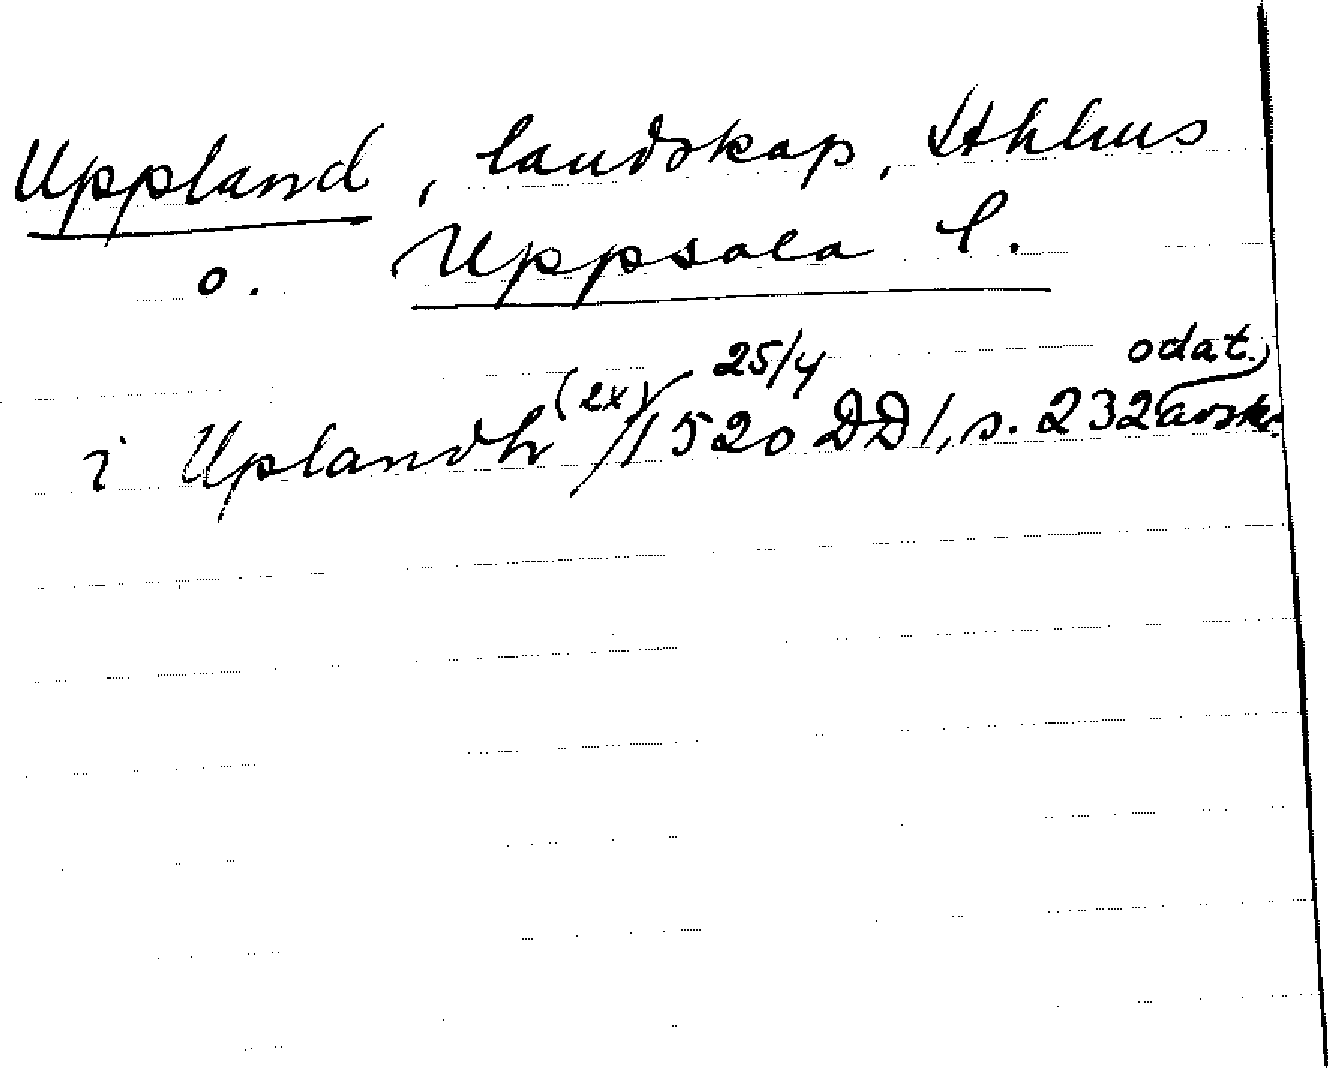 Uppland, landskap, Sthlms
o. Uppsala l.
i Uplandh (2x) 25/4 1520 DD 1, s. 232 odat. avskr.